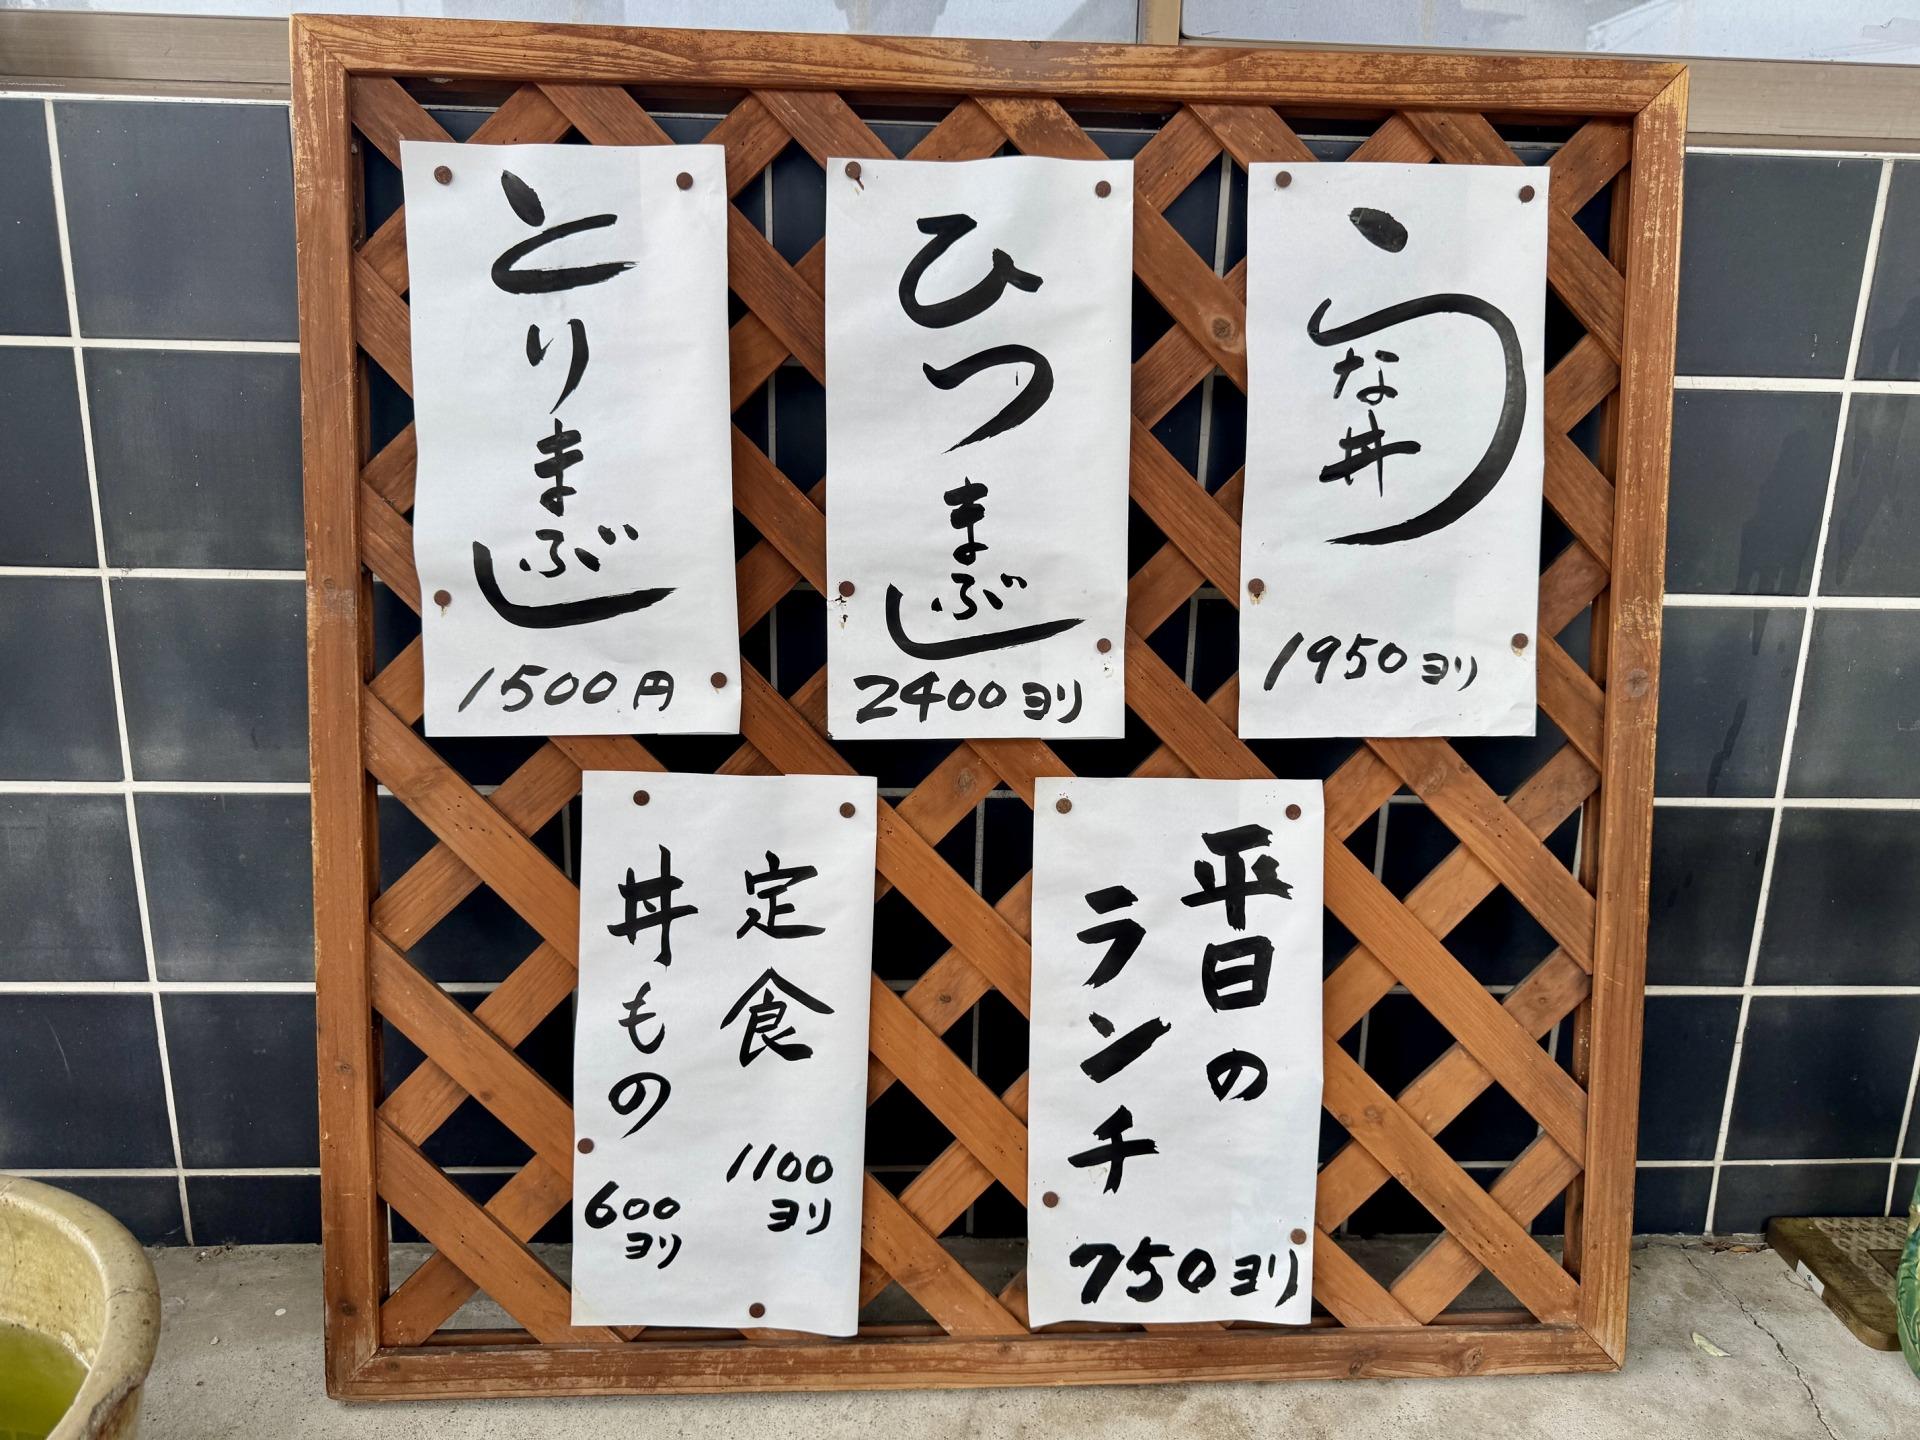 うな丼
1950ヨリ
ひつまぶし
2400ヨリ
とりまぶし
1500円
平日の
ランチ
750ヨリ
定食
1100
ヨリ
丼もの
600
ヨリ